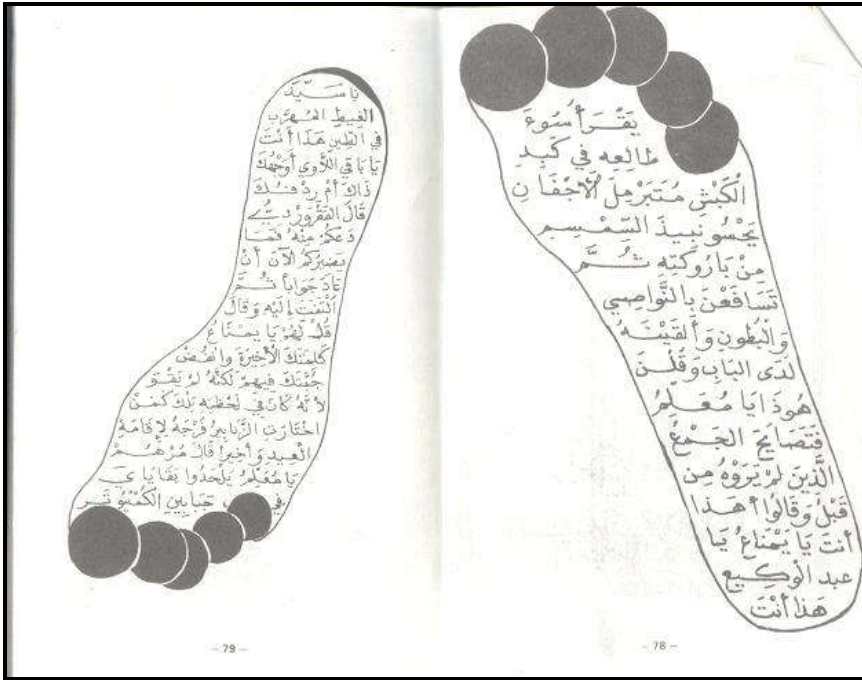 يَقْرَأُ سُوءَ
طَالِعِهِ فِي كَبِدِ
الْكَبْشِ مُتَبَرْمِلَ الْأَجْفَانِ
يَحْسُو نَبِيذَ السِّمْسِمِ
مِنْ بَارُوكَتِهِ ثُمَّ
تَسَافَعْنَ بِالنَّوَاصِي
وَالْبُطُونِ وَأَلْقَيْنَهُ
لَدَى الْبَابِ وَقُلْنَ
هُوَ ذَا يَا مُعَلِّمُ
فَتَصَايَحَ الْجَمْعُ
الَّذِينَ لَمْ يَرَوْهُ مِن
قَبْلُ وَقَالُوا أَهَذَا
أَنْتَ يَا يَمْنَاعُ يَا
عبد الْوَكِيعِ
هَذَا أَنْتَ
– 78 –
يَا سَيِّدَ
الغَيطِ المُهَرَّبِ
فِي الطِّينِ هَذَا أَنْتَ
يَا بَاقِي اللَّأْوِي أَوَجْهُكَ
ذَاكَ أَمْ رِدْفُكَ
قَالَ
دَعْكُمُ مِنْهُ فَمَا
يَضِيرُكُمُ الْآنَ أَنْ
عَادَ جَوَابًا ثُمَّ
الْتَفَتَ إِلَيْهِ وَقَالَ
قُلْ لَهُمْ يَا يَمْنَاعُ
كَلِمَتَكَ الْأَخِيرَةَ وَانْفُضْ
جُثَّتَكَ فِيهِمْ لَكِنَّهُ لَمْ يَقْوَ
لِأَنَّهُ كَانَ فِي لَحْظَتِهِ تِلْكَ كَمَنْ
اخْتَارَتِ الزَّنَابِيرُ فَرْجَهُ لِإِقَامَةِ
الْعِيدِ وَأَخِيرًا قَالَ مُرْهُمْ
يَا مُعَلِّمُ يَلْحَدُوا بَقَايَايَ
فِي جَبَّابِينِ الْكَمْبْيُوتَرِ
– 79 –